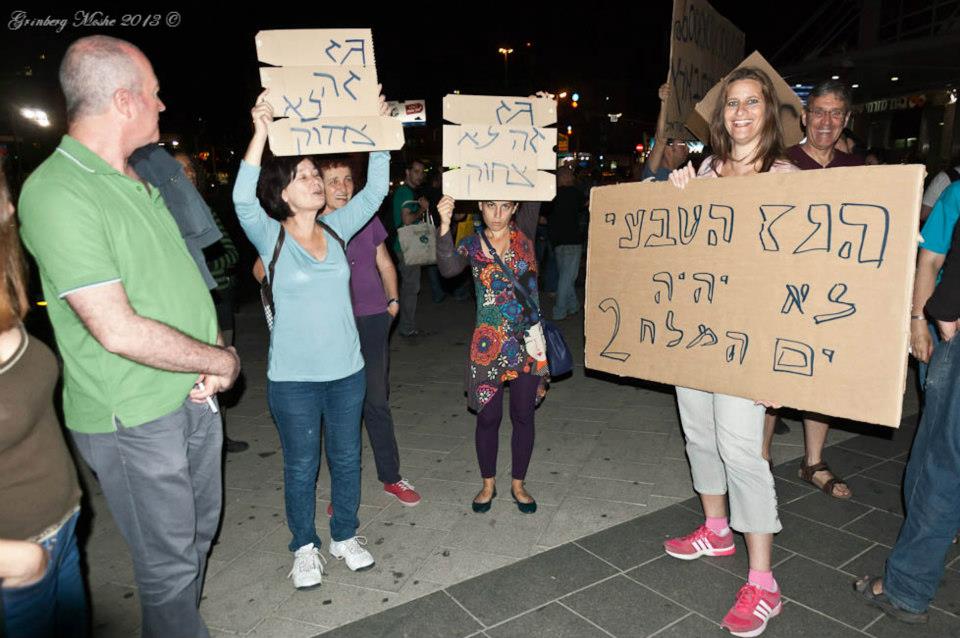 Grinberg Moshe 2013 ©
גז
זה לא
צחוק
גז
זה לא
צחוק
הגז הטבעי
לא יהיה
ים המלח 2